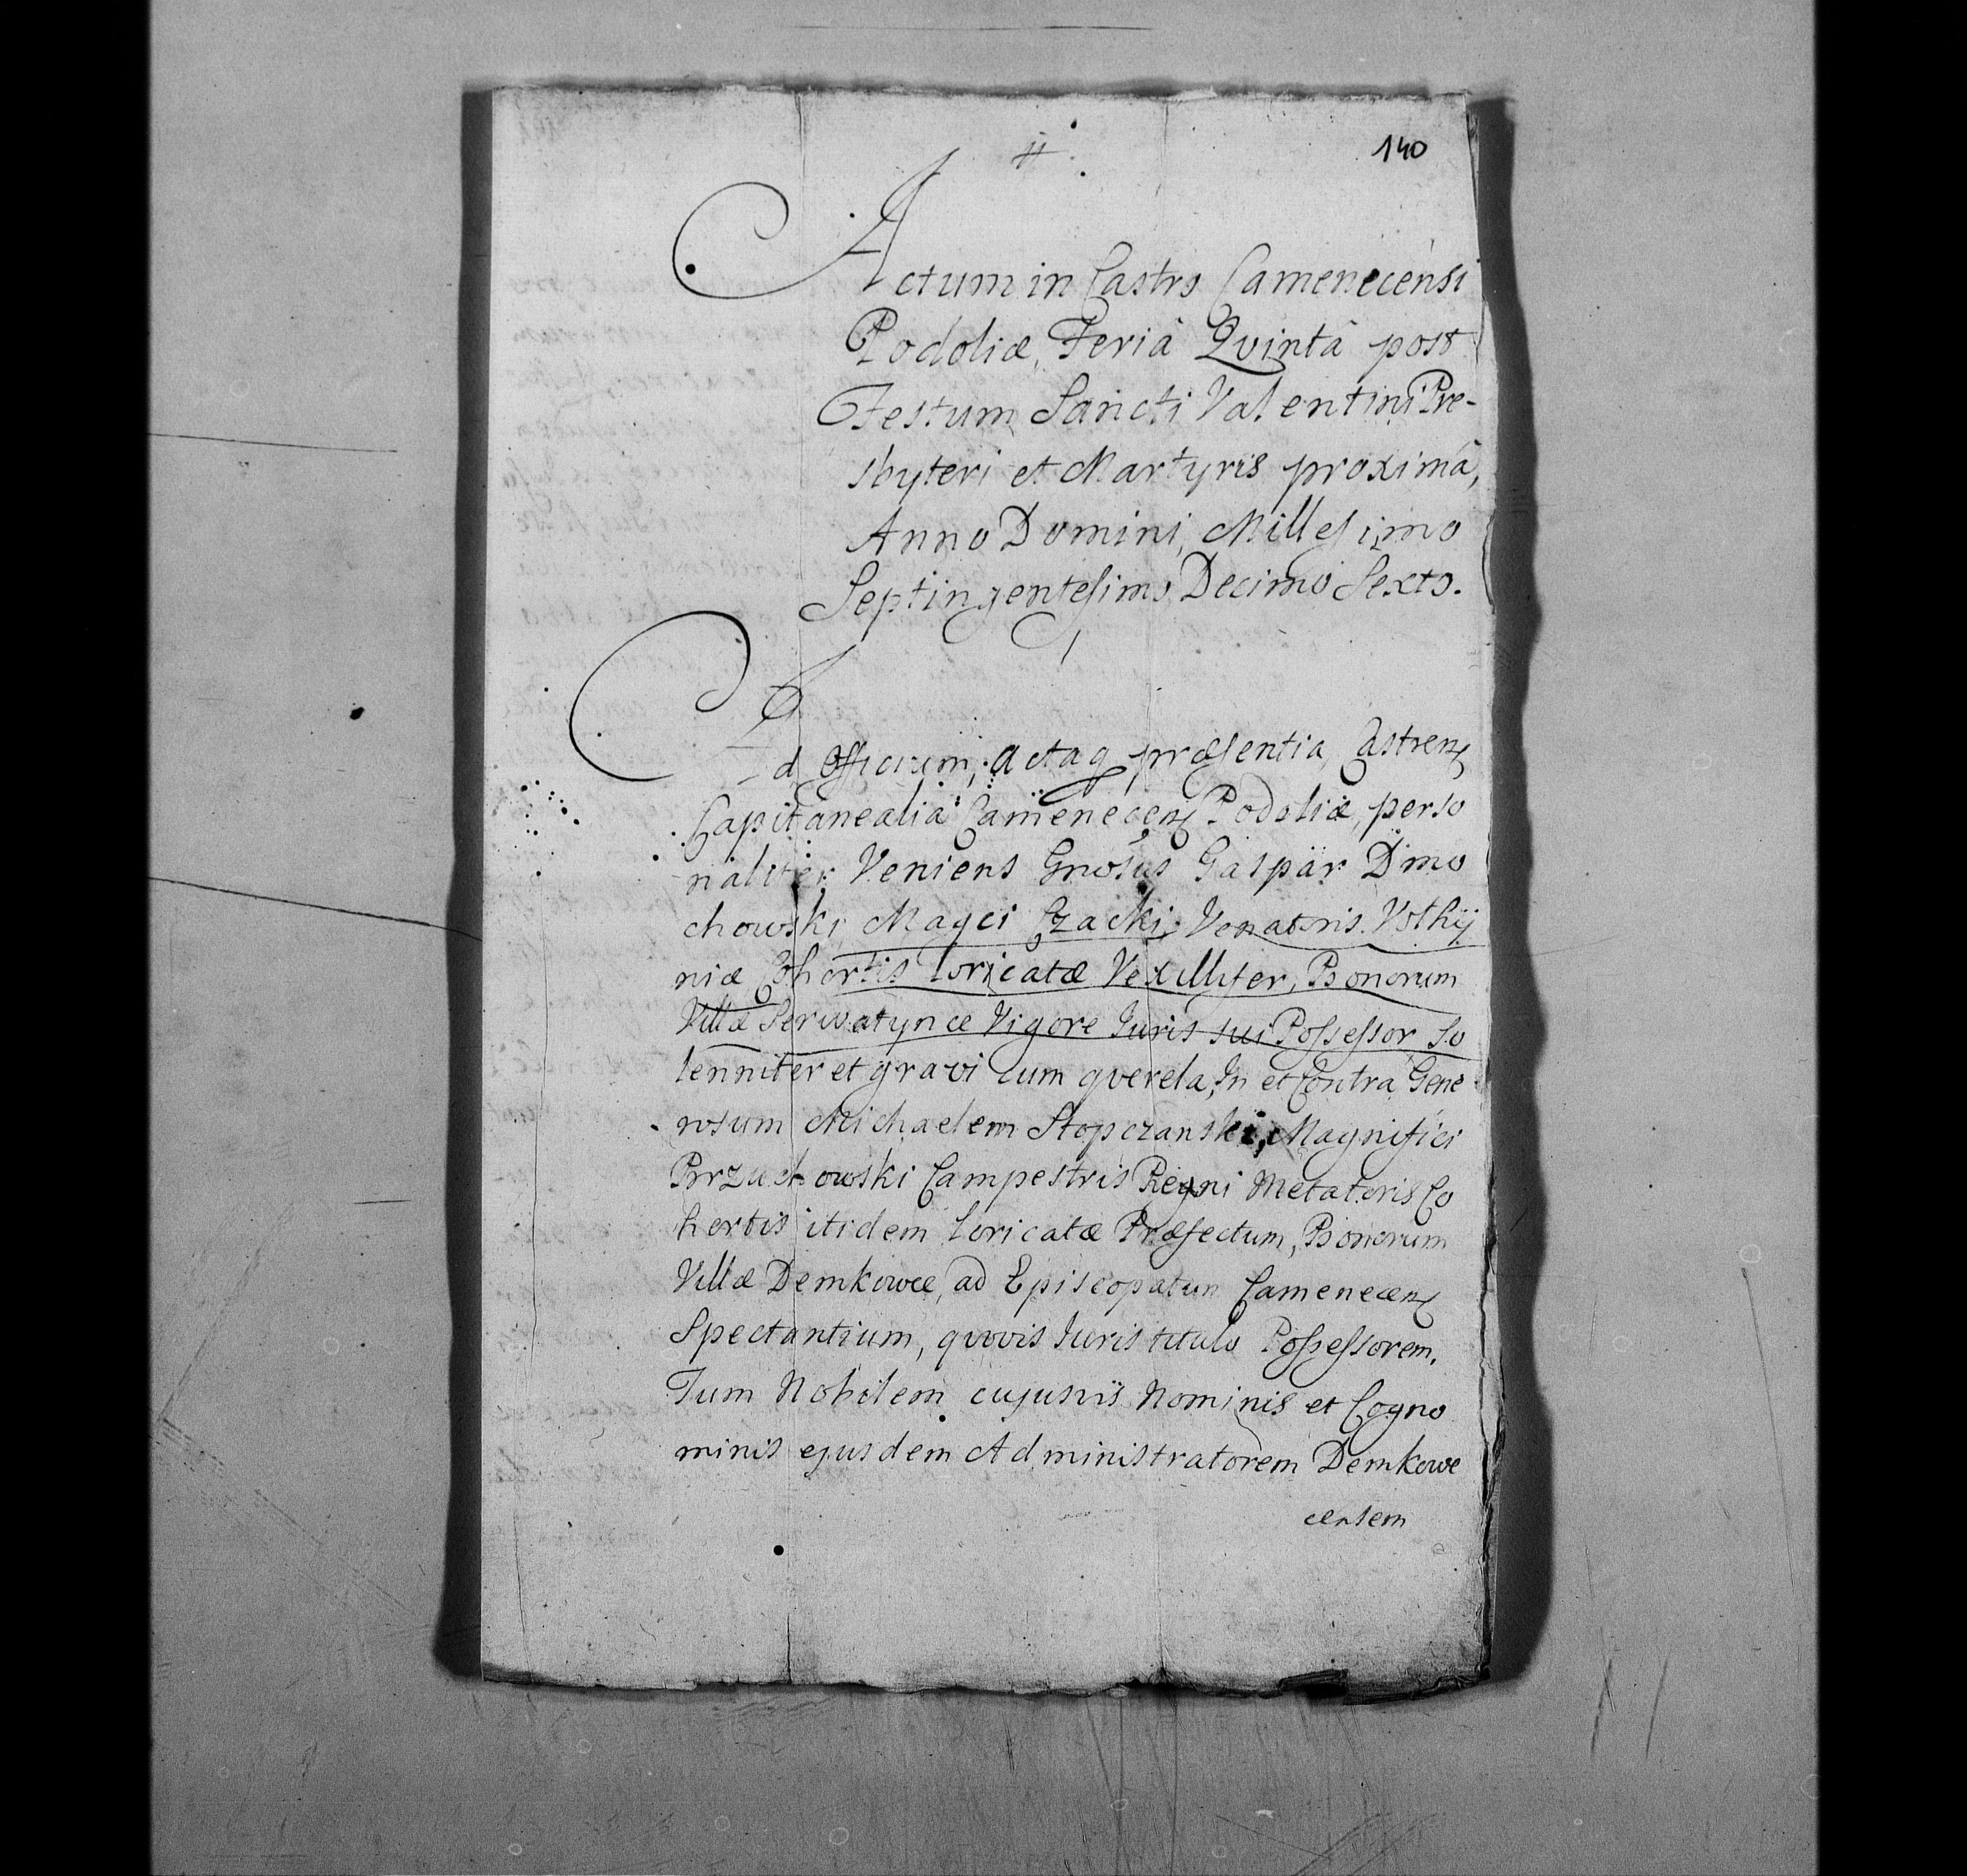 140
#
Actum in Castro Camenecensi
Podoliæ, Feriâ Qvintâ post
Festum Sancti Valentini Pre-
sbyteri et Martyris proximâ,
Anno Domini, Millesimo
Septingentesimo Decimo Sexto.
Ad Officium, actaq præsentia, Castrenz
Capitanealia Camenecenz Podoliæ, perso
naliter Veniens Gnosus Gaspar Dmo
chowski Magci Czacki, Venatoris Volhÿ
niæ Cohortis loricatæ Vexillifer, Bonorum
Villæ Serwatynce Vigore Iuris sui Possessor So
lenniter et gravi cum qverela, In et Contra Gene
rosum Michaelem Stopczanski, Magnifici
Brzuchowski Campestris Regni Metatoris Co
hortis itidem loricatæ Præfectum, Bonorum
Villæ Demkowce, ad Episcopatum Camenecenz
Spectantium, qvovis Iuris titulo Possessorem.
Tum Nobilem cujusvis Nominis et Cogno
minis ejusdem Administratorem Demkowe
censem